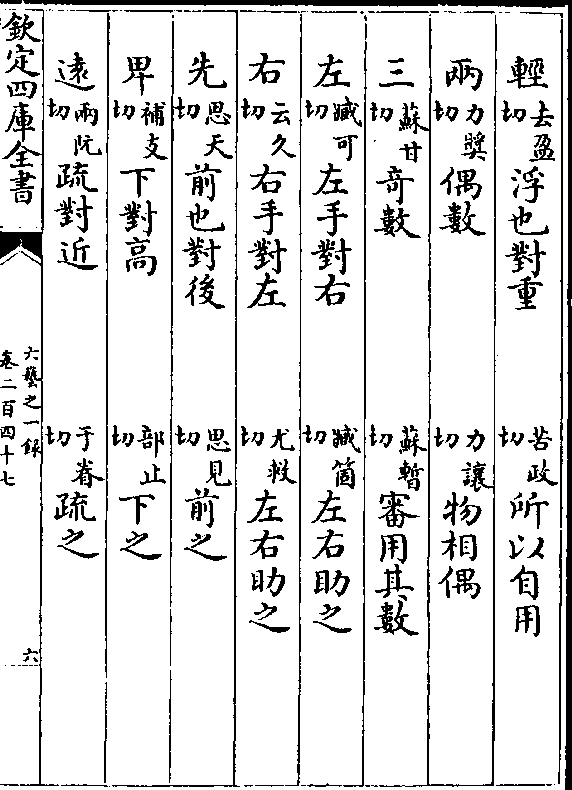 輕去盈切浮也對重 苦政切所以自用
兩力奬切偶數 力讓切物相偶
三蘇甘切竒數 蘇暫切審用其數
左臧可切左手對右 臧箇切左右助之
右云久切右手對左 尤救切左右助之
先思天切前也對後 思見切前之
卑補支切下對高 部止切下之
遠兩阮切疏對近 于眷切疏之
欽定四庫全書
六藝之一録
卷二百四十七
六